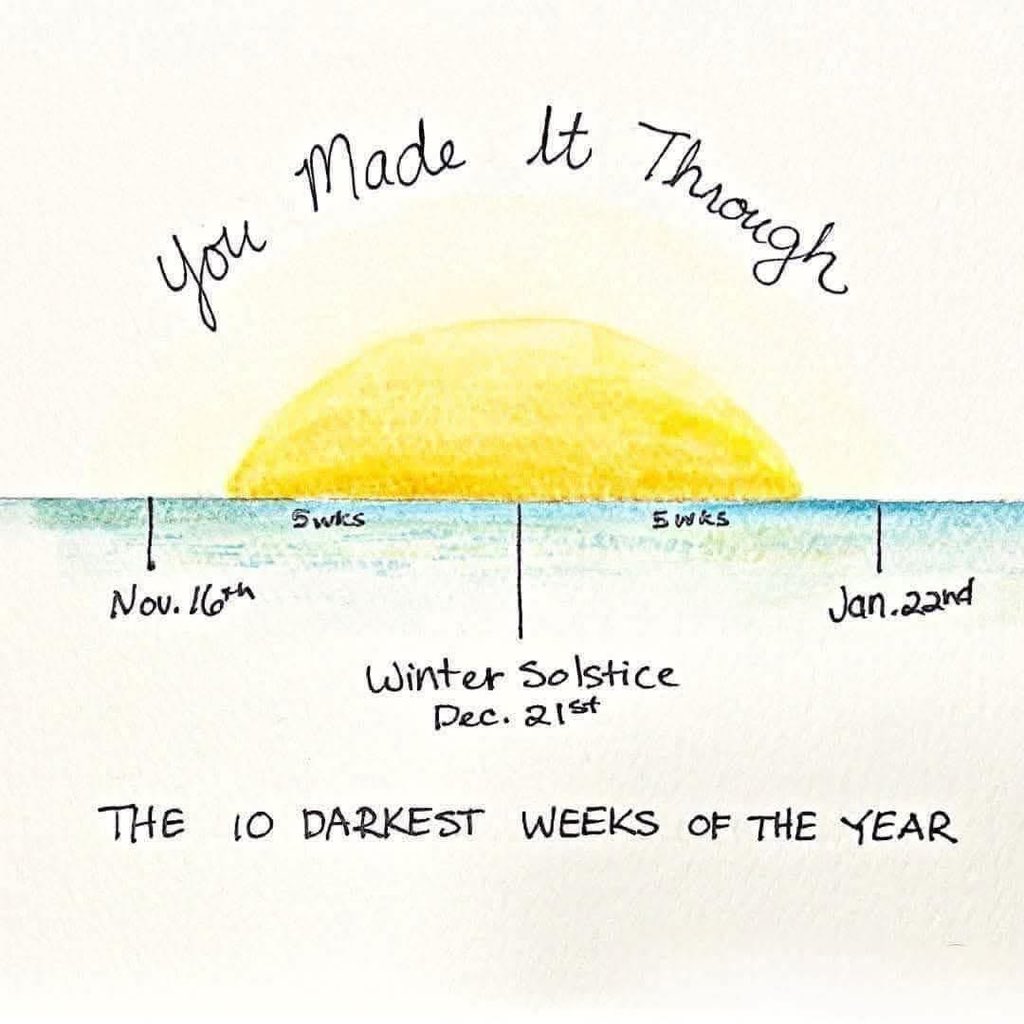 You Made It Through
5wks 5wks
Nov. 16th
Jan. 22nd
Winter Solstice
Dec. 21st
THE 10 DARKEST WEEKS OF THE YEAR